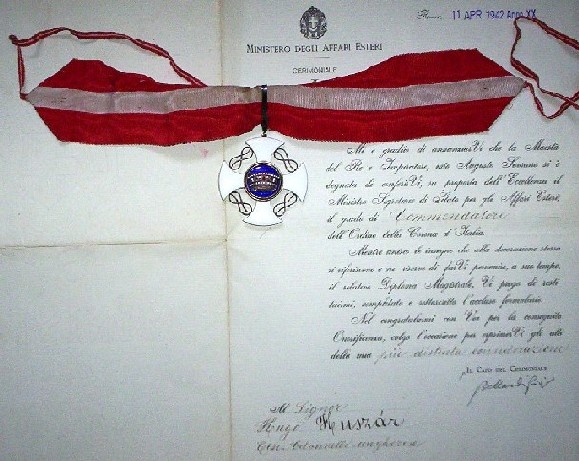 Roma, 11 APR 1942 Anno XX
MINISTERO DEGLI AFFARI ESTERI
CERIMONIALE
Mi è gradito di annunciarVi che la Maestà
del Re e Imperatore, Augusto Sovrano si è
degnata di conferirVi, su proposta dell'Eccellenza il
Ministro Segretario di Stato per gli Affari Esteri,
il grado di Commendatore
dell'Ordine della Corona d'Italia.
Mentre le insegne che alla decorazione stessa
si riferiscono e mi riservo di farVi pervenire, a suo tempo,
il relativo Diploma Magistrale, Vi prego di resti-
tuirmi, completato e sottoscritto l'accluso formulario.
Nel congratularmi con Voi per la conseguita
Onorificenza, colgo l'occasione per esprimerVi gli atti
della mia più distinta considerazione
IL CAPO DEL CERIMONIALE
Al Signor
Hugo Huszár